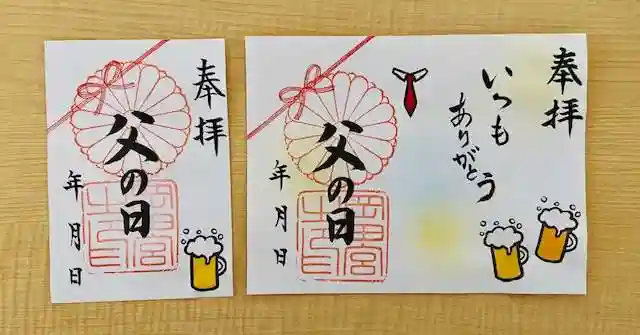 奉拝
父の日
年月日
奉拝
いつも
ありがとう
父の日
年月日